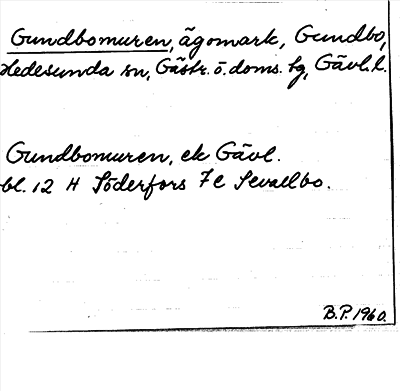 Gundbomuren, ägomark, Gundbo,
Hedesunda sn, Gästr. ö. doms. tg, Gävl. l.
Gundbomuren, ek Gävl.
bl. 12 H Söderfors 7 e Sevallbo.
B.P. 1960.